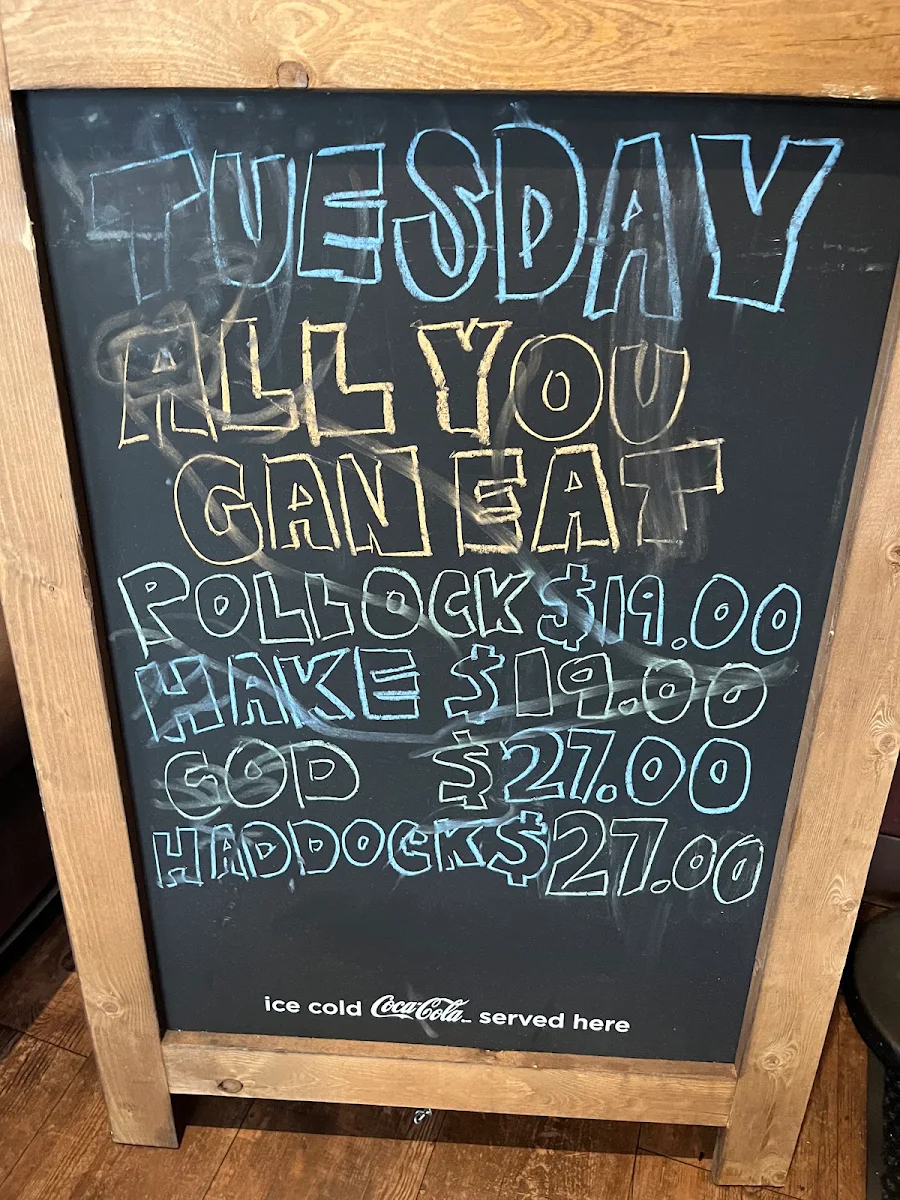 TUESDAY
ALL YOU
CAN EAT
POLLOCK $19.00
HAKE $19.00
COD $27.00
HADDOCK $27.00
ice cold Coca-Cola served here